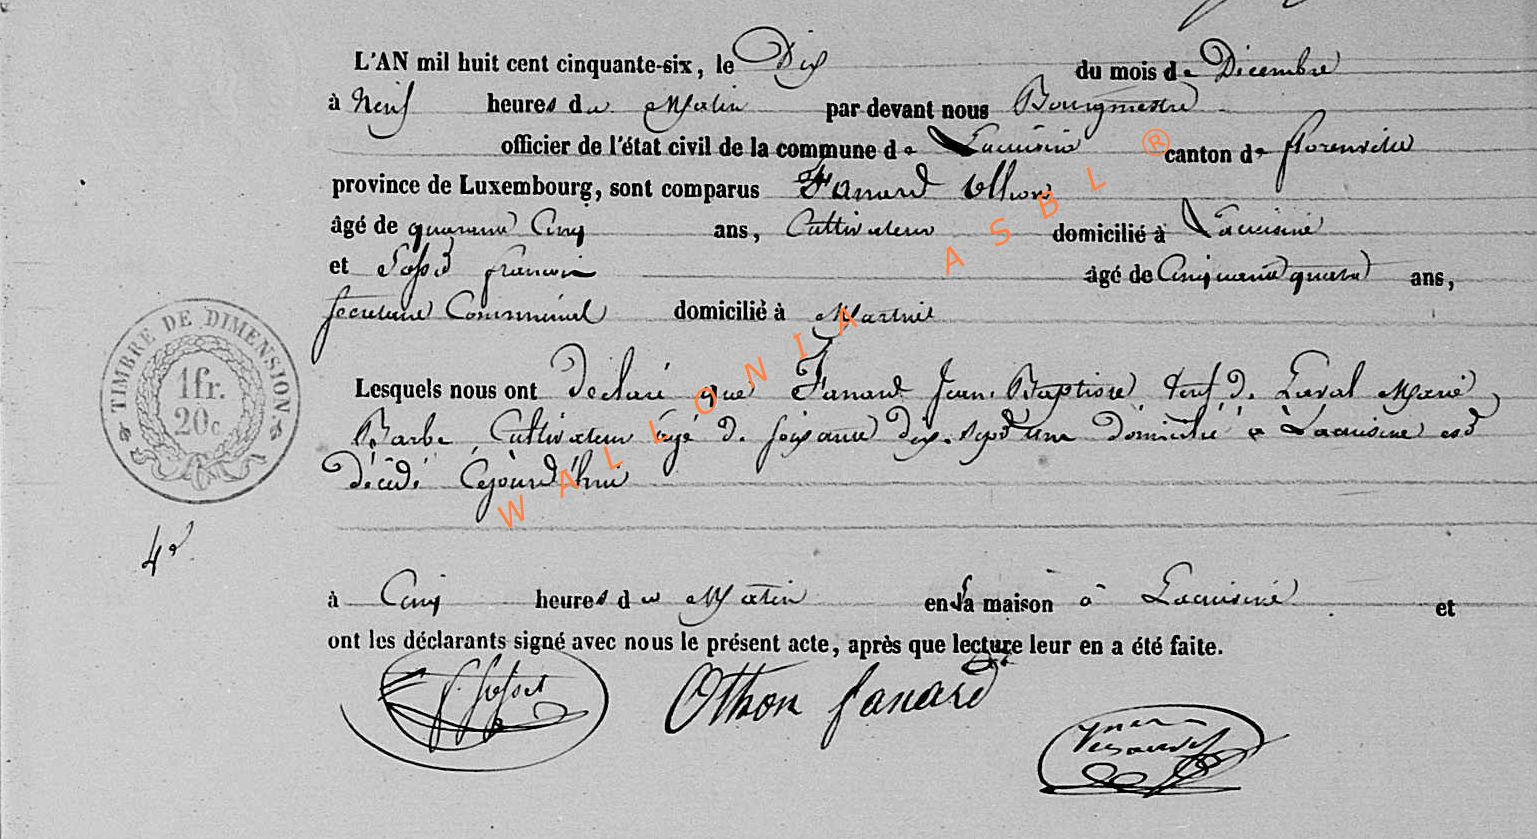 L'AN mil huit cent cinquante-six, le Dix du mois de Décembre
à Neuf heures du Matin par devant nous Bourgmestre
officier de l'état civil de la commune de Lacuisine canton de florenville
province de Luxembourg, sont comparus Fanard Othon
âgé de quarante Cinq ans, Cultivateur domicilié à Lacuisine
et francois âgé de Cinquante quatre ans,
Secretaire Communal domicilié à Martué
Lesquels nous ont declaré que Fanard Jean Baptiste veuf de Laval Marie
Barbe Cultivateur agé de soixante dix-sept ans domicilié à Lacuisine est
décédé Cejourd'hui
à Cinq heures du Matin en sa maison à Lacuisine et
ont les déclarants signé avec nous le présent acte, après que lecture leur en a été faite.
Othon fanard
TIMBRE DE DIMENSION
1fr.
20c
WALLONIA ASBL ®